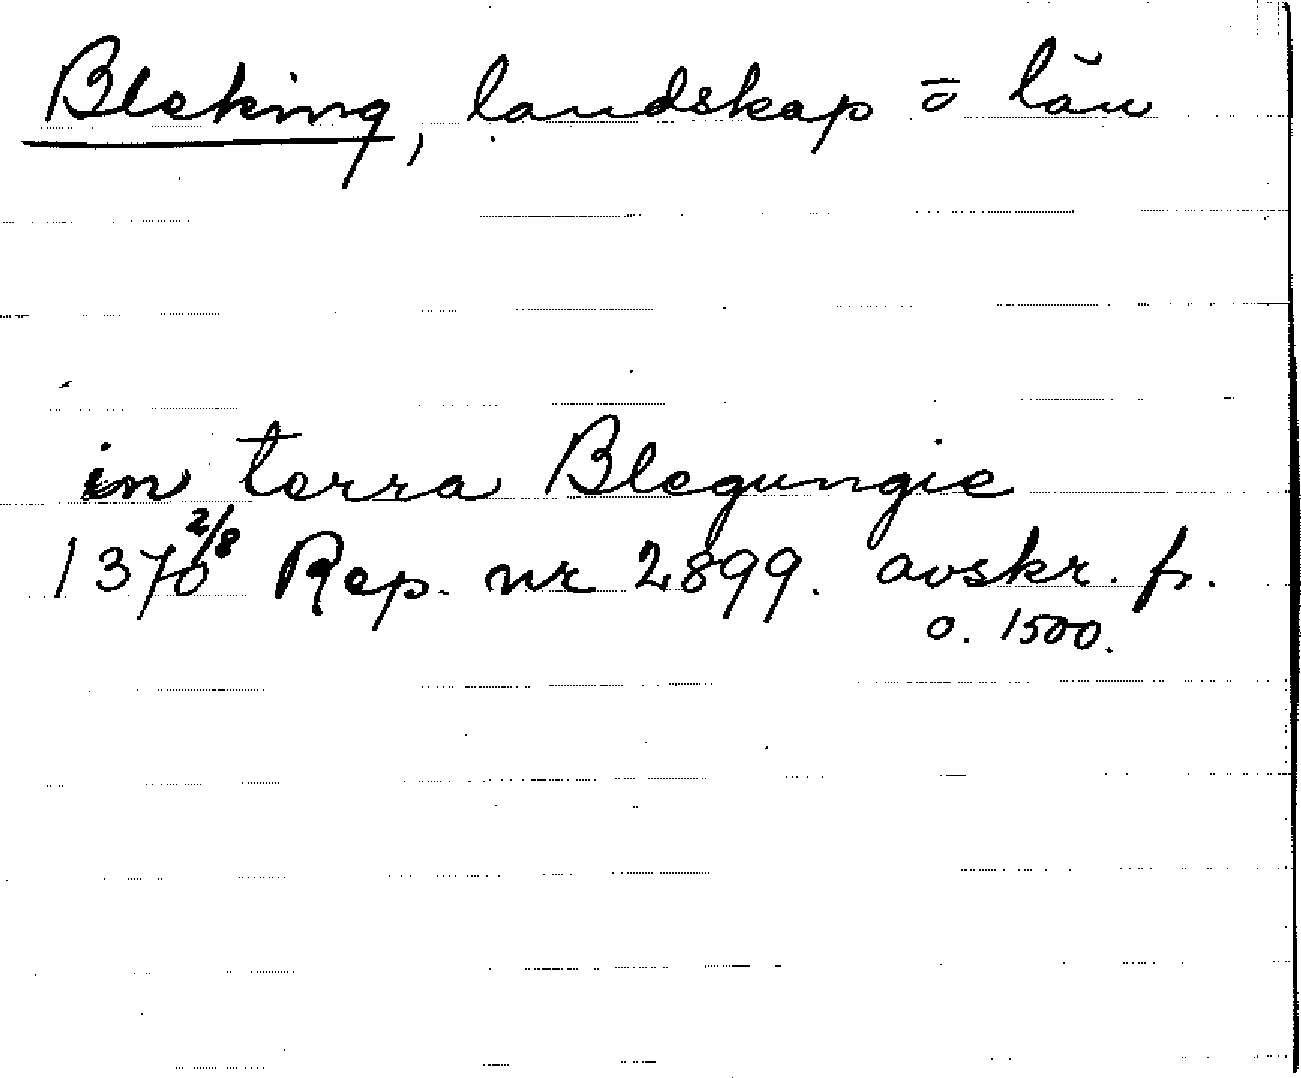 Bleking, landskap o̅ län
in terra Blegungie
1370 2/8 Rep. nr 2899. avskr. fr.
o. 1500.